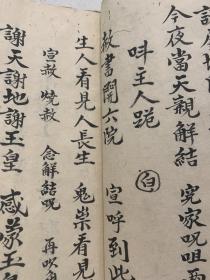 今夜當天觀解結 冤家呪咀再
叫主人跪 白
赦書開六院 宣呼到此
生人看見人長生 鬼祟看見
宣赦 燒赦 念解結呪 再吹角
謝天謝地謝玉皇 感蒙玉皇